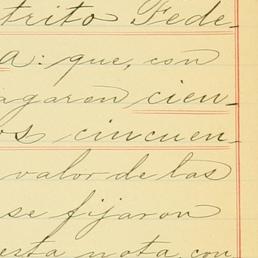 trito Fede-
a: que, con
agaron cien-
os cincuen-
valor de las
se fijaron
esta nota con